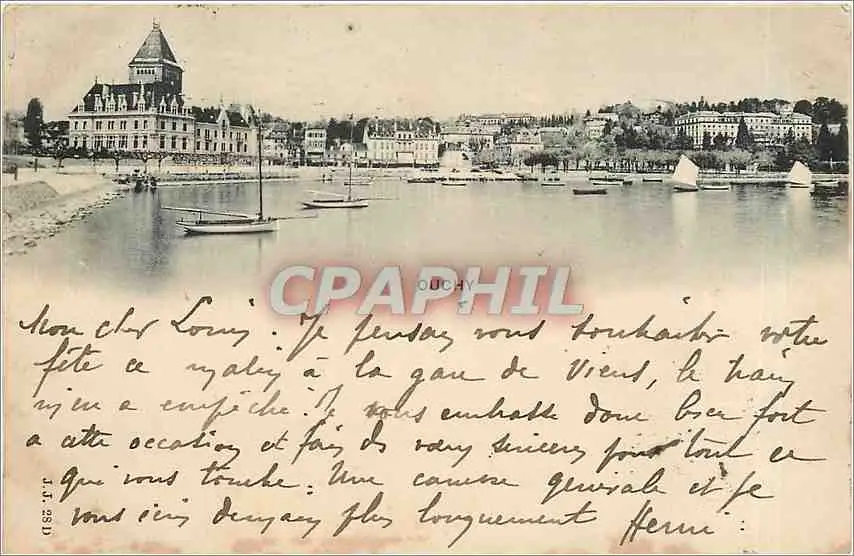 OUCHY
CPAPHIL
Mon cher Louis. Je pensais vous souhaiter votre
fête ce matin à la gare de Viens, le train
m'en a empêché. Je vous embrasse donc bien fort
a cette occasion et fais des vœux sincères pour tout ce
qui vous touche. Une caresse générale et je
vous écris demain plus longuement Henri.
J.J. 28 D